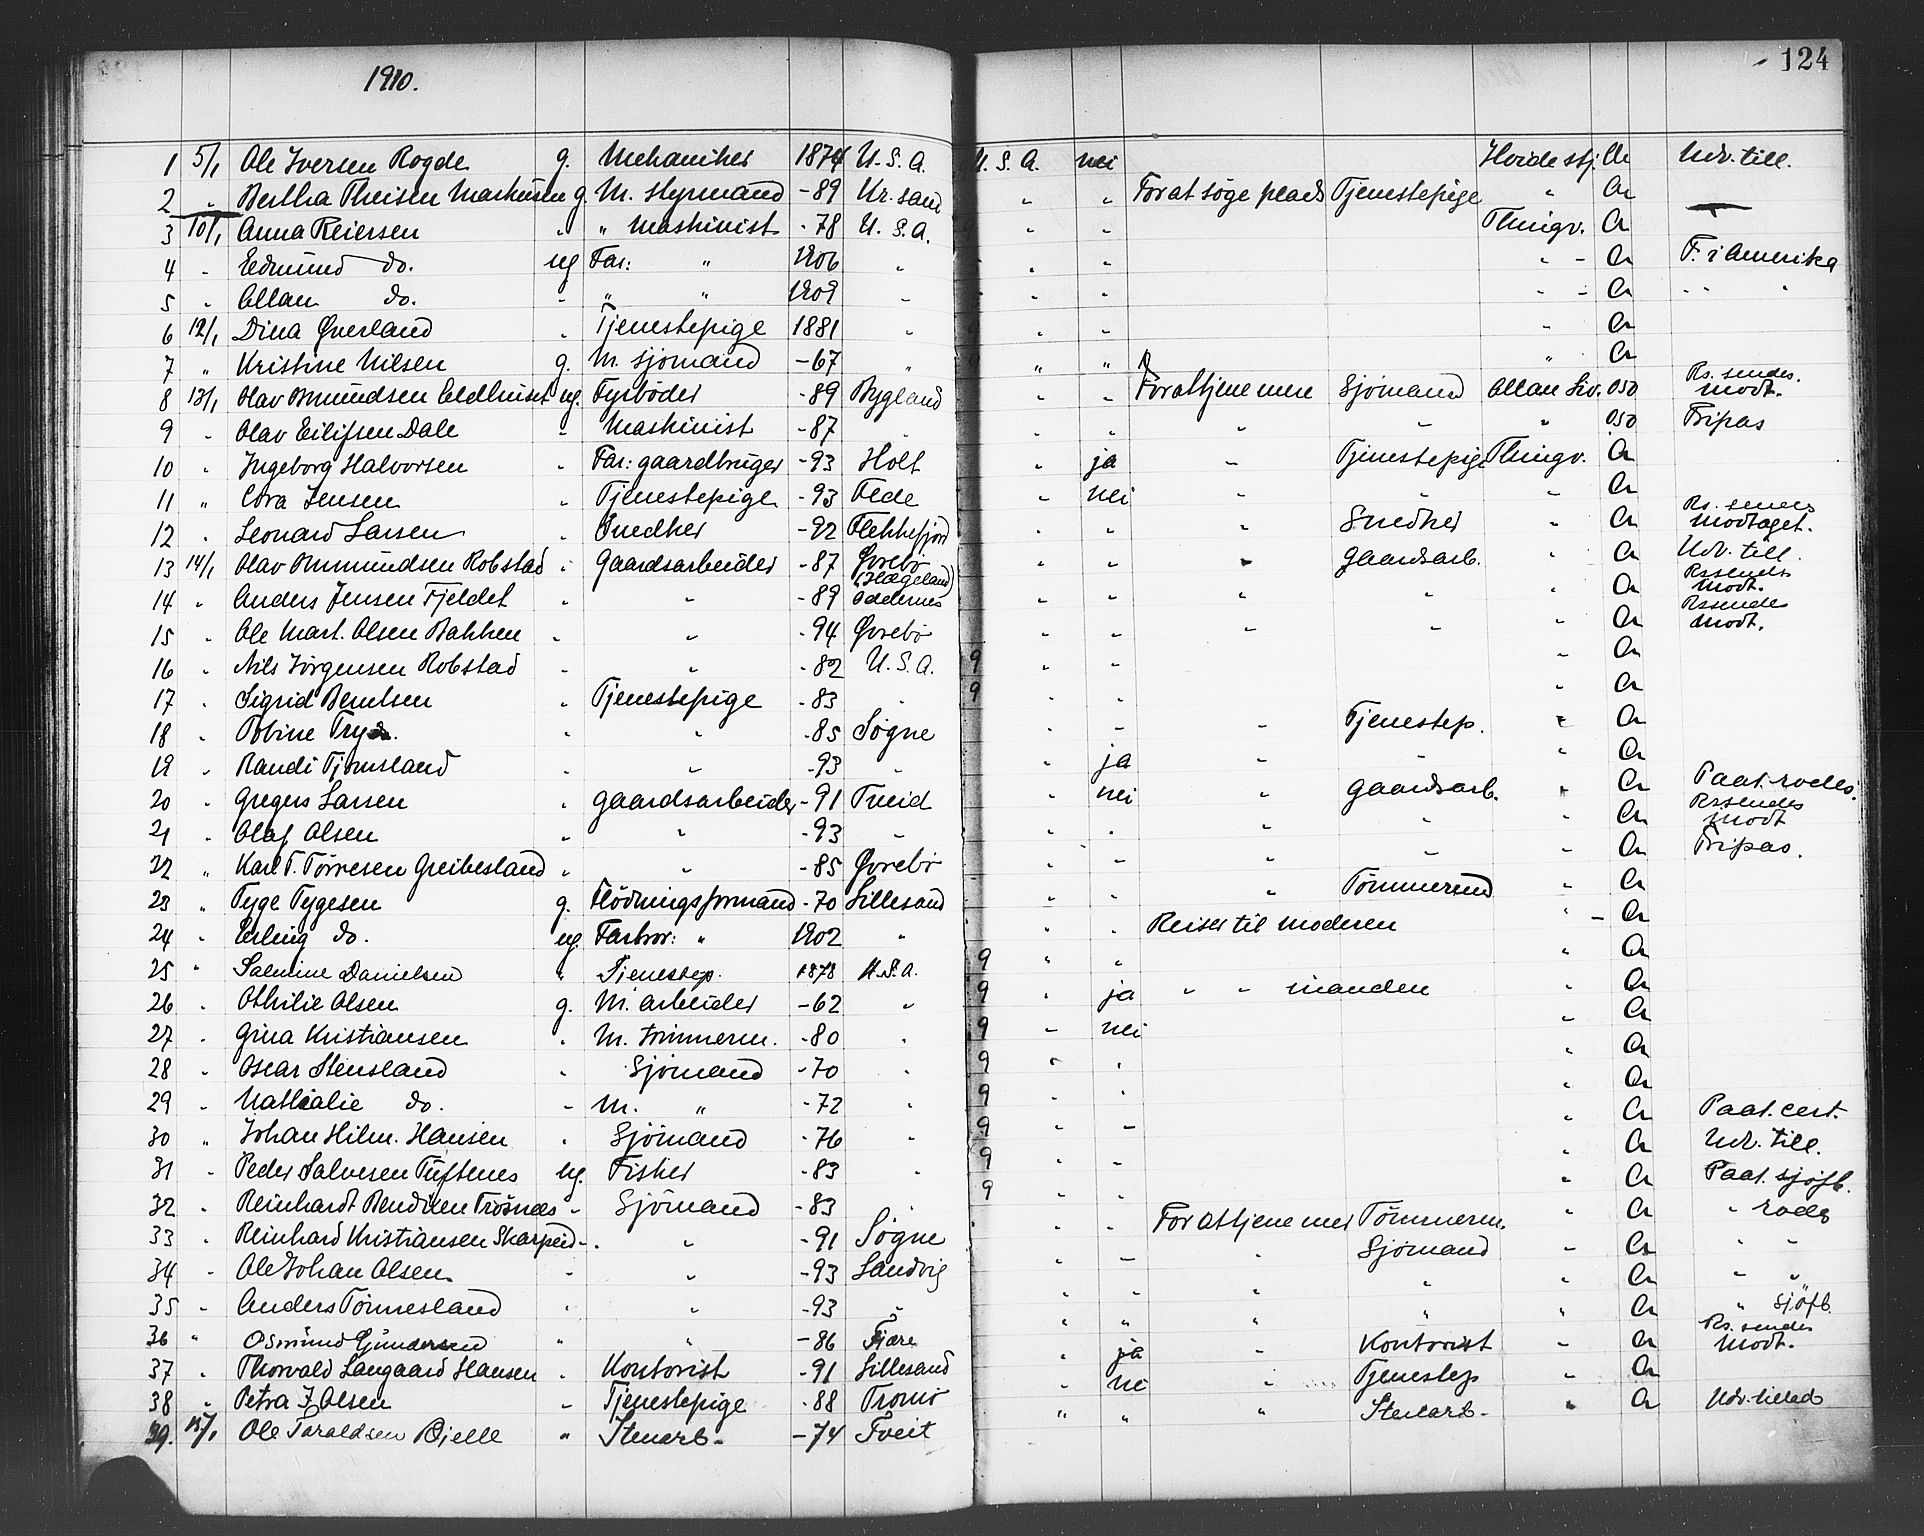 1910.
124
1 5/1 Ole Iversen Rogde g. Mekaniker 1874 U.S.A. U.S.A. nei Hvidestj. Cr Udv. till.
2 " Bertha Theisen Markussen g. M. styrmand -89 Kr.sand " " For at söge plads Tjenestepige " Cr
3 10/1 Anna Reiersen " " Maskinist -78 U.S.A. " " Thingv. Cr
4 " Edmund do. ug Far: " 1906 " " " " - Cr F. i Amerika
5 " Allan do. " " " 1909 " " " " - Cr " " "
6 12/1 Dina Øverland " Tjenestepige 1881 " 9 " " " Cr
7 " Kristine Nilsen g. M. sjömand -67 " 9 " " " Cr
8 13/1 Olav Omundsen Eeldhuset ug. Fyrböder -89 Bygland " " For at tjene mere Sjömand Allan Liv. 050 Rs. sendes. modt.
9 " Olav Eilifsen Dale " Maskinist -87 " " " " " " 050 Fripas
10 " Ingeborg Halvorsen " Far: gaardbruger -93 Holt " ja " Tjenestepige Thingv. Cr
11 " Cora Jensen " Tjenestepige -93 Fede " nei " " " Cr
12 " Leonard Larsen " Snedker -92 Flekkefjord " " " Snedker " Cr Rs. sendes modtaget.
13 14/1 Olav Omundsen Robstad " Gaardsarbeider -87 Øvrebø (Hægeland) " " " gaardsarb. " Cr Udv. till.
14 " Anders Jensen Fjeldet " " -89 Oddernes " " " " " Cr Rs sendes modt.
15 " Ole Mart. Olsen Bakken " " -94 Øvrebø " " " " " Cr Rs sendes modt.
16 " Nils Jørgensen Robstad " " -82 U.S.A. 9 " " " Cr
17 " Sigrid Berntsen " Tjenestepige -83 " 9 " " " Cr
18 " Tobine Try. " " -85 Søgne " " " Tjenestep. " Cr
19 " Randi Tjomsland " " -93 " " ja " " " Cr
20 " Gregers Larsen " gaardsarbeider -91 Tveid " nei " gaardsarb. " Cr Paat. rodes.
21 " Olaf Olsen " " -93 " " " " " " Cr Rs sendes modt
22 " Karl T. Tørresen Greibesland " " -85 Øvrebø " " " " " Cr Fripas.
23 " Tyge Tygesen g. Flödningsformand -70 Lillesand " " " Tömmermd " Cr
24 " Erling do. ug. Farbror: " 1902 " " " Reiser til moderen " - Cr
25 " Salmine Danielsen " Tjenestep. 1878 U.S.A. 9 " " " Cr
26 " Othilie Olsen g. M. arbeider -62 " 9 " ja " " manden " Cr
27 " Gina Kristiansen " M. tömmerm. -80 " 9 " nei " Cr
28 " Oscar Stensland " Sjömand -70 " 9 " " " Cr
29 " Nathalie do. " M. " -72 " 9 " " " Cr
30 " Johan Hilm. Hansen " Sjömand -76 " 9 " " " Cr Paat. cert.
31 " Peder Salvesen Tuftenes ug. Fisker -83 " 9 " " " Cr Udv. till.
32 " Reinhardt Bendiksen Trosnæs " Sjömand -83 " 9 " " " Cr Paat. sjøfb.
33 " Reinhard Kristiansen Skarpeid " " -91 Søgne " " For at tjene mer Tömmerm. " Cr " rode
34 " Ole Johan Olsen " " -93 Landvig " " " Sjömand " Cr " "
35 " Anders Tönnesland " " -93 " " " " " " Cr " "
36 " Osmund Gundersen " " -86 Fjære " " " " " Cr " sjöfb.
37 " Thorvald Langaard Hansen " Kontorist -91 Lillesand " ja " Kontorist " Cr Rs. sendes modt.
38 " Petra J Olsen " Tjenestepige -88 Tromö " nei " Tjenestep " Cr
39. 15/1 Ole Taraldsen Bjelle " Stenarb. -74 Tveit " " " Stenarb. " Cr Udv. tillad